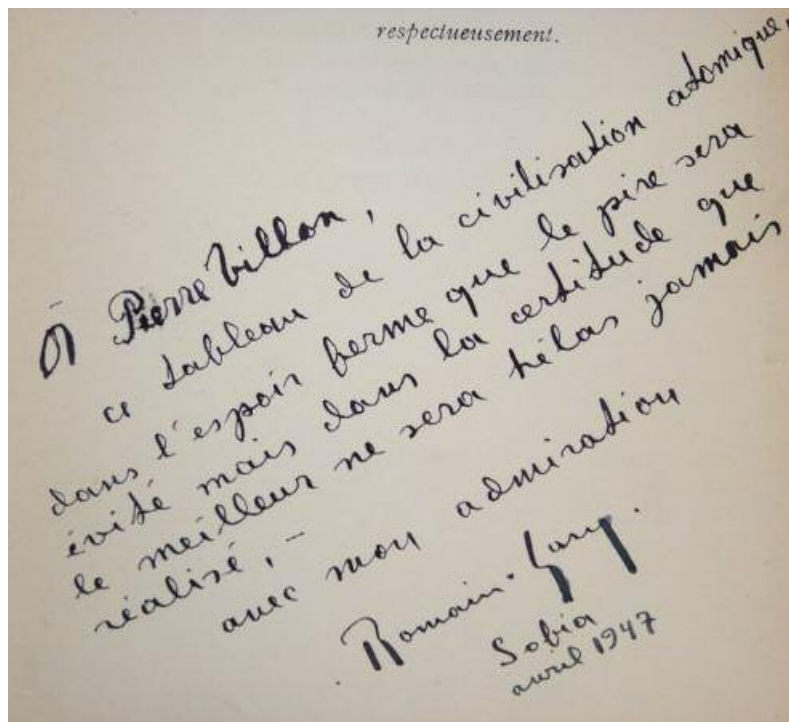 respectueusement.
à Pierre Villon,
ce tableau de la civilisation atomique,
dans l'espoir ferme que le pire sera
évité mais dans la certitude que
le meilleur ne sera hélas jamais
réalisé, –
avec mon admiration
Romain Gary.
Sofia
avril 1947